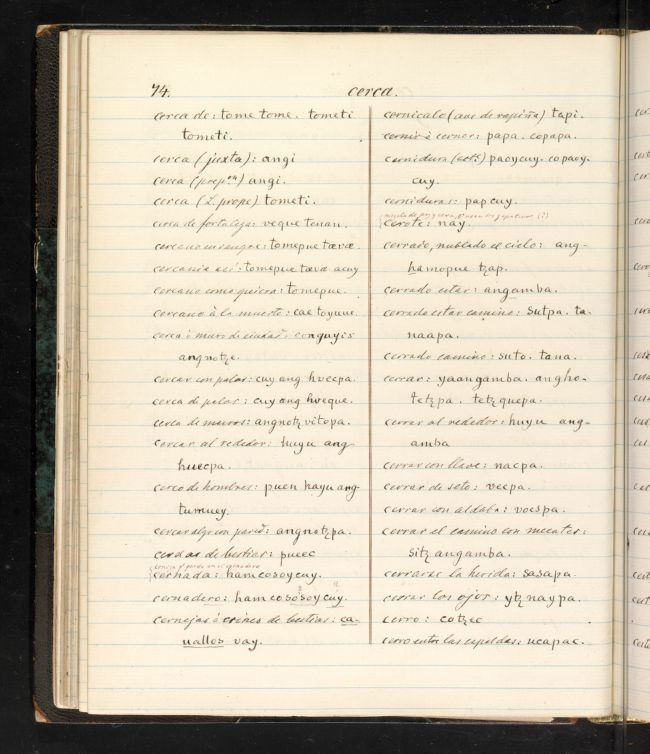 74.
cerca.
cerca de: tome tome. tometi
tometi.
cerca (juxta): angi
cerca (prepon) angi.
cerca (L. prope) tometi.
cerca de fortaleza: veque tenan.
cercano en rangre: tomepue tævæ.
cercania assi: tomepue tæva acuy
cercano como quiera: tomepue.
cercano à la muerte: cae toyuue.
cerca ó muro de ciudad: conguyis
angnotze.
cercar con palos: cuy ang hvecpa.
cerca de palos: cuy ang hveque.
cerca de muros: angnotz vitopa.
cercar al rededor: huyu ang
huecpa.
cerco de hombres: puen hayu ang-
tumuey.
cercar algo con pared: angnotzpa.
cerdas de bestias: puec
cernada: ham cosoycuy.
cernadero: ham cososoycuy.
cernejas ó crines de bestias: ca-
uallos vay.
cernicalo (ave de rapiña) tapi.
cernir è cerner: papa. copapa.
cernidura (acts) paoycuy. copaoy-
cuy.
cerniduras: pap cuy.
cerote: nay.
cerrado, nublado el cielo: ang-
hamopue tzap.
cerrado estar: angamba.
cerrado estar camino: sutpa. ta-
naapa.
cerrado camino: suto. tana.
cerrar: yaangamba. angho-
tetzpa. tetzquepa.
cerrar al rededor: huyu ang-
amba
cerrar con llave: nacpa.
cerrar de seto: vecpa.
cerrar con aldaba: voespa.
cerrar el camino con mecates:
sitz angamba.
cerrarse la herida: sasapa.
cerrar los ojos: ytz naypa.
cerro: cotzec
cerro entre las espaldas: ucapac.